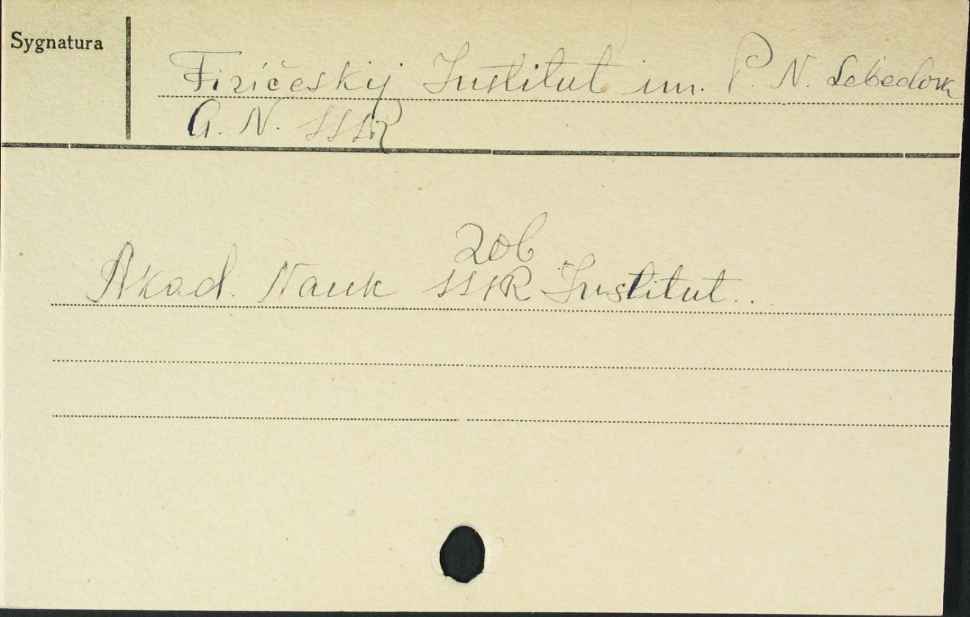 Sygnatura
Fizičeskij Institut im. P. N. Lebedova
A. N. SSSR
Zob
Akad. Nauk SSSR Institut..